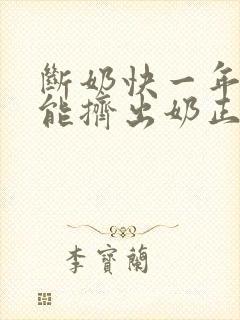 斷奶快一年
能擠出奶正
李寶蘭